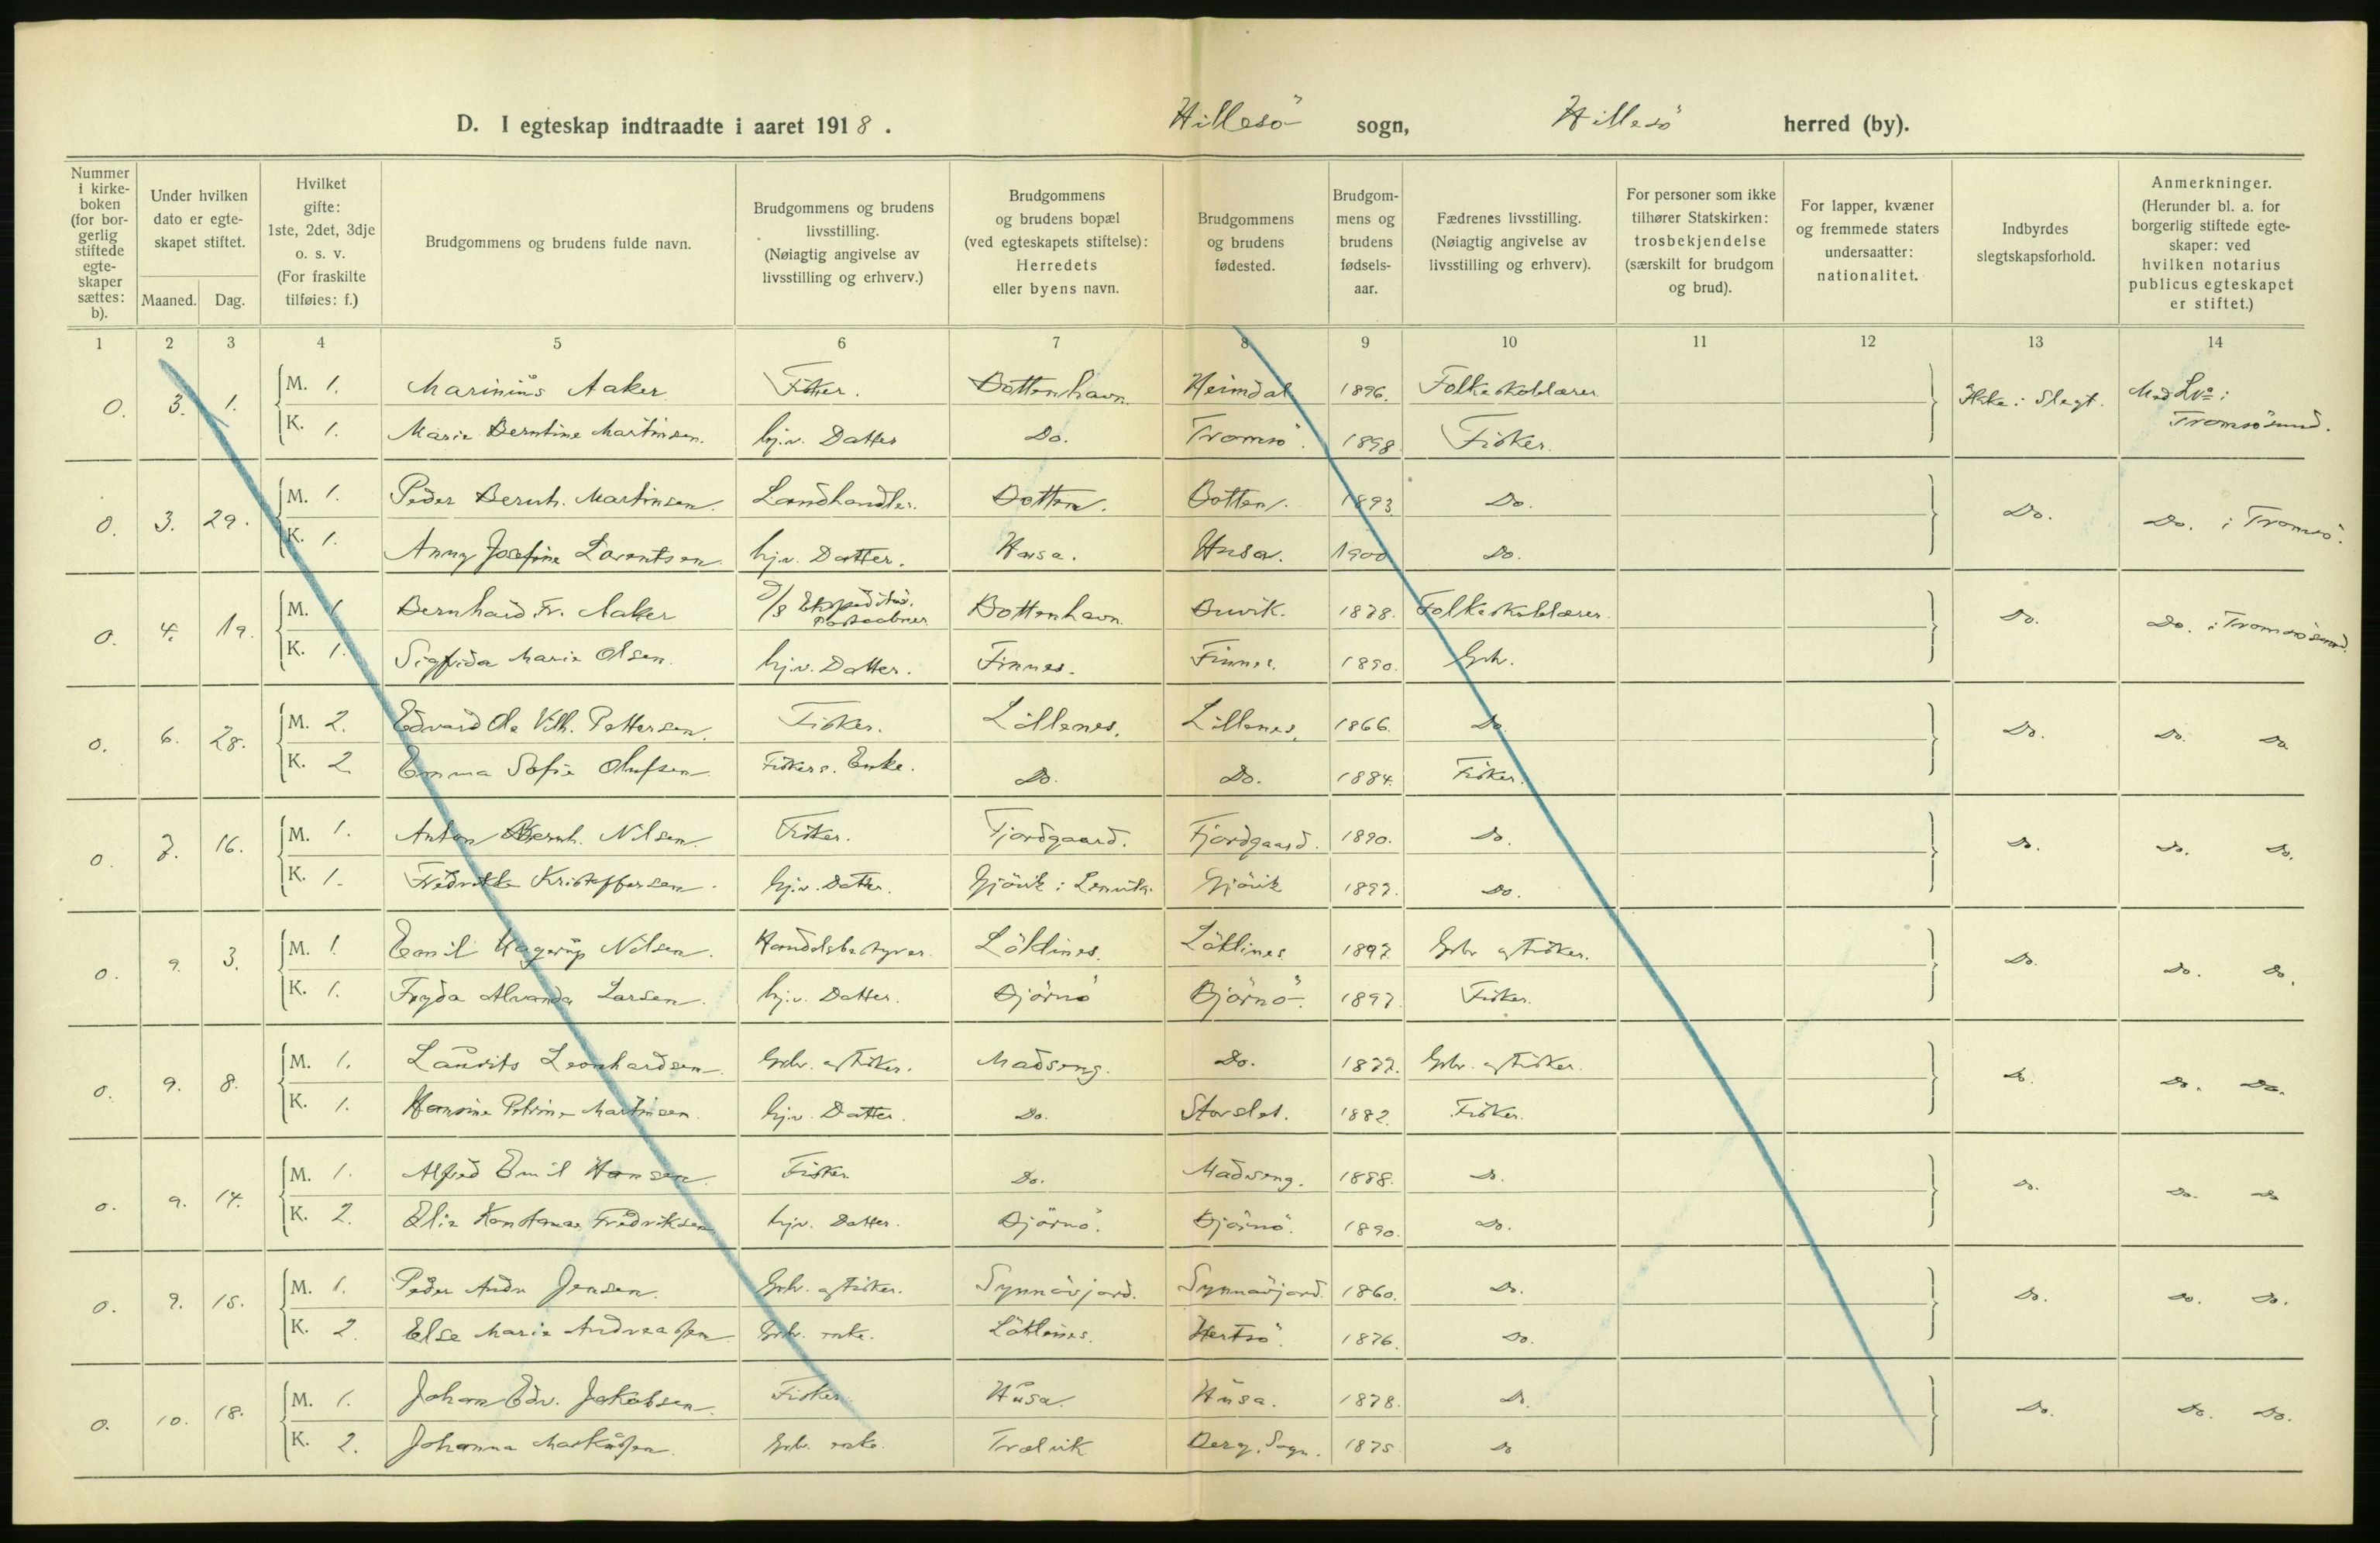 D. I egteskap indtraadte i aaret 1918. Hillesö sogn, Hillesö herred (by).
Nummer i kirke-boken (for bor-gerlig stiftede egte-skaper sættes: b).
Under hvilken dato er egte-skapet stiftet.
Maaned. Dag.
Hvilket gifte: 1ste, 2det, 3dje o. s. v. (For fraskilte tilføies: f.)
Brudgommens og brudens fulde navn.
Brudgommens og brudens livsstilling. (Nøiagtig angivelse av livsstilling og erhverv.)
Brudgommens og brudens bopæl (ved egteskapets stiftelse): Herredets eller byens navn.
Brudgommens og brudens fødested.
Brudgom-mens og brudens fødsels-aar.
Fædrenes livsstilling. (Nøiagtig angivelse av livsstilling og erhverv).
For personer som ikke tilhører Statskirken: trosbekjendelse (særskilt for brudgom og brud).
For lapper, kvæner og fremmede staters undersaatter: nationalitet.
Indbyrdes slegtskapsforhold.
Anmerkninger. (Herunder bl. a. for borgerlig stiftede egte-skaper: ved hvilken notarius publicus egteskapet er stiftet.)
1 2 3 4 5 6 7 8 9 10 11 12 13 14
0. 3. 1. M. 1. Marinius Aaker. Fisker. Bottenhavn. Heimdal. 1896. Folkeskolelærer Ikke i Slegt. Med Lv: i
K. 1. Marie Berntine Martinsen. hj.v. Datter Do. Tromsö. 1898. Fisker. Tromsösund.
0. 3. 29. M. 1. Peder Bernh. Martinsen. Landhandler. Botten. Botten. 1893. Do. Do. Do. i Tromsö.
K. 1. Anny Josefine Lorentsen. hj.v. Datter. Husa. Husa. 1900 Do.
0. 4. 19. M. 1. Bernhard Fr. Aaker D/S Ekspeditör. Postaabner Bottenhavn. Buvik. 1878. Folkeskolelærer. Do. Do. i Tromsösund.
K. 1. Sigfrida Marie Olsen. hj.v. Datter. Finnes. Finnes. 1890. Gbr.
0. 6. 28. M. 2. Edvard Ole Vilh. Pettersen. Fisker. Lillenes. Lillenes. 1866. Do. Do. Do. Do
K. 2. Emma Sofie Olufsen Fiskers. Enke. Do. Do. 1884. Fisker.
0. 7. 16. M. 1. Anton Bernh. Nilsen. Fisker. Fjordgaard. Fjordgaard. 1890. Do. Do. Do. Do.
K. 1. Fredrikke Kristoffersen. hj.v. Datter. Gjövik i Lenvik. Gjövik 1897. Do.
0. 9. 3. M. 1. Emil Hagerup Nilsen. Handelsbestyrer. Löklines. Löklines 1897. Gbr og fisker. Do. Do. Do.
K. 1. Fryda Alvanda Larsen. hj.v. Datter. Björnö Björnö. 1897. Fisker.
0. 9. 8. M. 1. Laurits Leonhardsen Gbr. og fisker. Madseng. Do. 1877. Gbr. og fisker. Do. Do. Do.
K. 1. Hansine Petrine Martinsen. hj.v. Datter. Do. Storslet. 1882. Fisker.
0. 9. 14. M. 1. Alfred Emil Hansen. Fisker Do. Madseng. 1888. Do. Do. Do. Do
K. 2. Elie Konstanse Fredriksen hj.v. Datter. Björnö. Björnö. 1890. Do.
0. 9. 15. M. 1. Peder Andr Jensen. Gbr. og fisker. Synnavjord. Synnavjord. 1860. Do. Do. Do. Do.
K. 2. Else Marie Andreassen Gbr. enke. Löklines. Hertsö. 1876. Do.
0. 10. 18. M. 1. Johan Edv. Jakobsen. Fisker. Husa. Husa. 1878. Do. Do. Do. Do.
K. 2. Johanna Markussen. Gbr. enke. Trælvik Berg. Sogn. 1875. Do